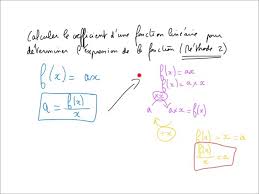 Calculer le coefficient d'une fonction linéaire pour
déterminer l'expression de la fonction (Méthode 2)
f(x) = ax
a = f(x)/x
f(x) = ax
f(x) = a × x
a × x = f(x)
÷x
f(x) ÷ x = a
f(x)/x = a